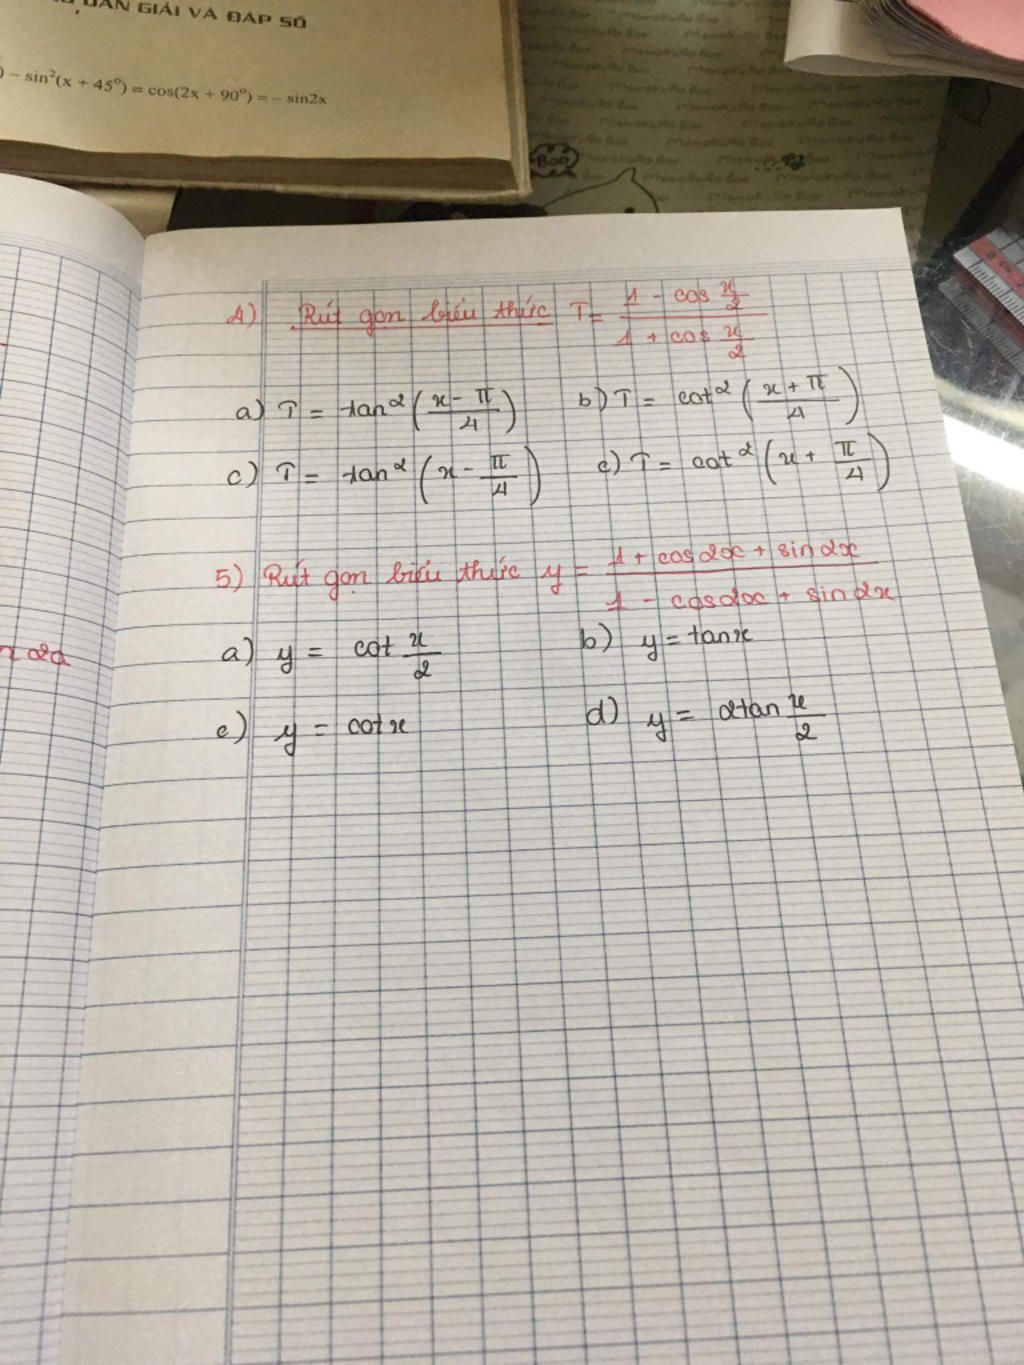 DẪN GIẢI VÀ ĐÁP SỐ
) - sin²(x + 45⁰) = cos(2x + 90⁰) = - sin2x
Boo
4) Rút gọn biểu thức T = (1 - cos x/2)/(1 + cos x/2)
a) T = tan² ((x - π)/4) b) T = cot² ((x + π)/4)
c) T = tan² (x - π/4) d) T = cot² (x + π/4)
5) Rút gọn biểu thức y = (1 + cos2x + sin2x)/(1 - cos2x + sin2x)
2a
a) y = cot x/2 b) y = tanx
c) y = cotx d) y = 2tan x/2